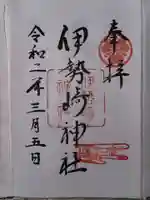 奉拝
伊勢崎神社
令和二年三月五日